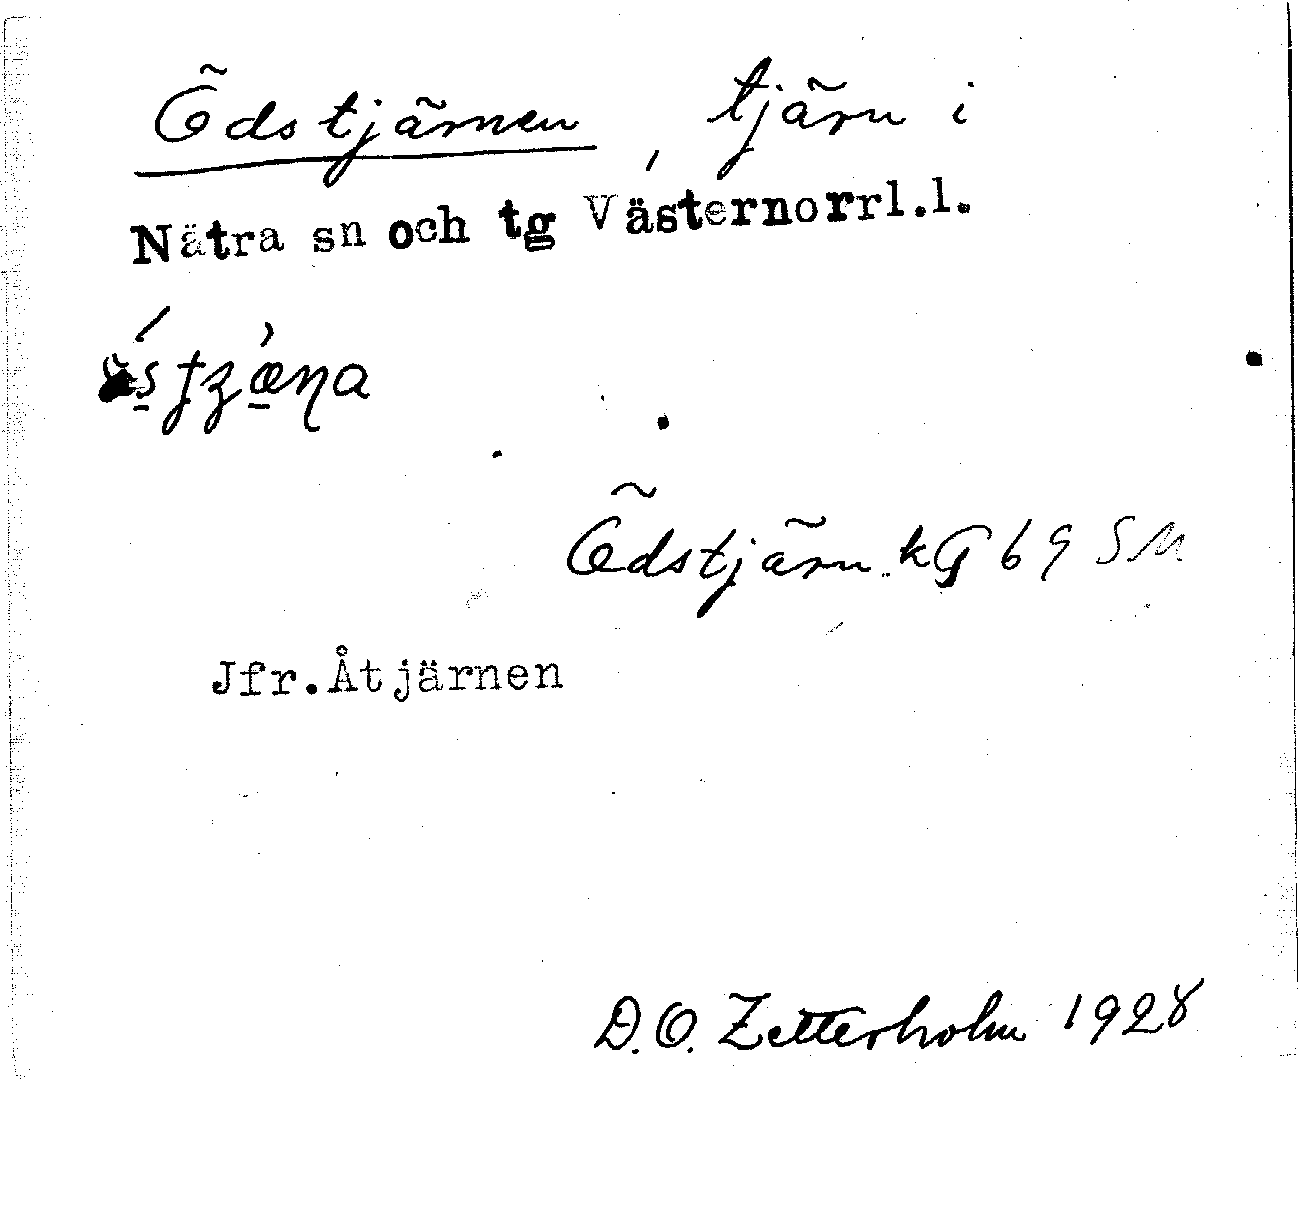 Ödstjärnen, tjärn i
Nätra sn och tg Västernorrl.l.
Ödstjärn kG 69 SM
Jfr.Åtjärnen
D.O. Zetterholm 1928